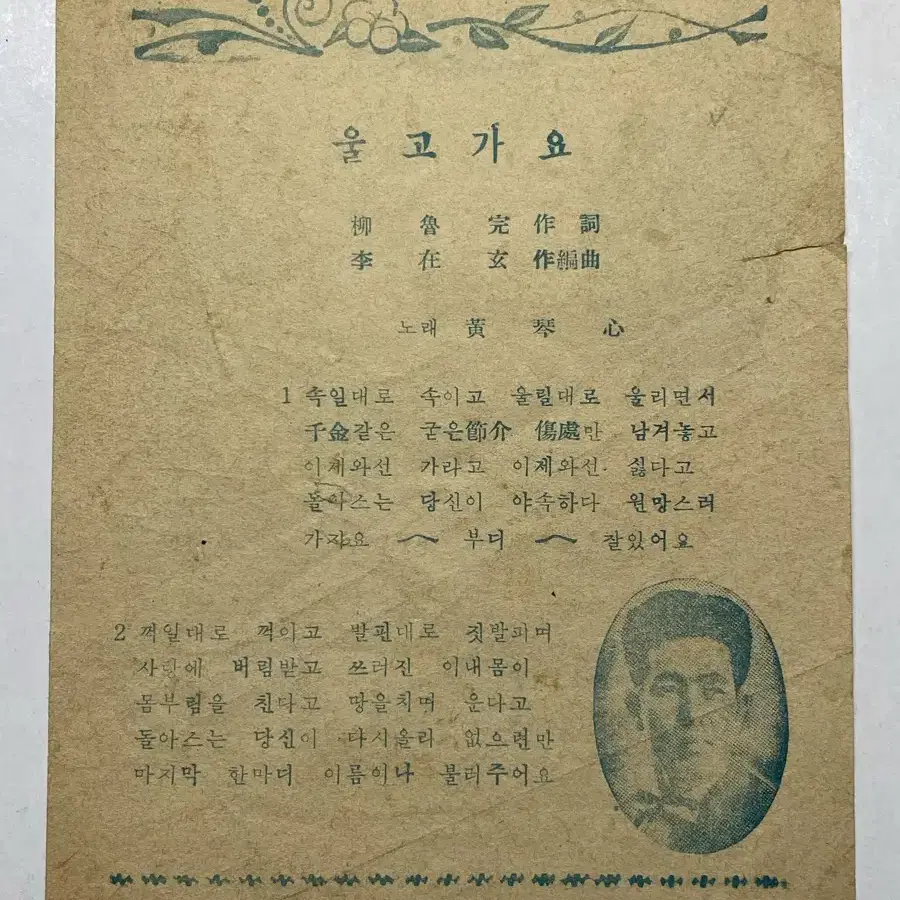 울고가요
柳魯完 作詞
李在玄 作編曲
노래 黃琴心
1 속일대로 속이고 울릴대로 울리면서
千金같은 굳은節介 傷處만 남겨놓고
이제와선 가라고 이제와선 싫다고
돌아스는 당신이 야속하다 원망스러
가자요 ︿ 부디 ︿ 잘있어요
2 꺽일대로 꺽이고 발핀대로 짓발피며
사랑에 버림받고 쓰러진 이내몸이
몸부림을 친다고 땅을치며 운다고
돌아스는 당신이 다시올리 없으련만
마지막 한마디 이름이나 불러주어요